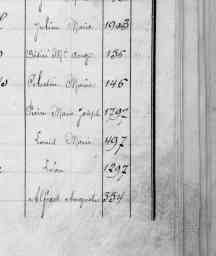 Julien Marie 1908
Désiré Me Ange 135
Célestin Marie 146
Pierre Marie Joseph 1797
Louis Marie 497
Léon 1297
Alfred Auguste 334